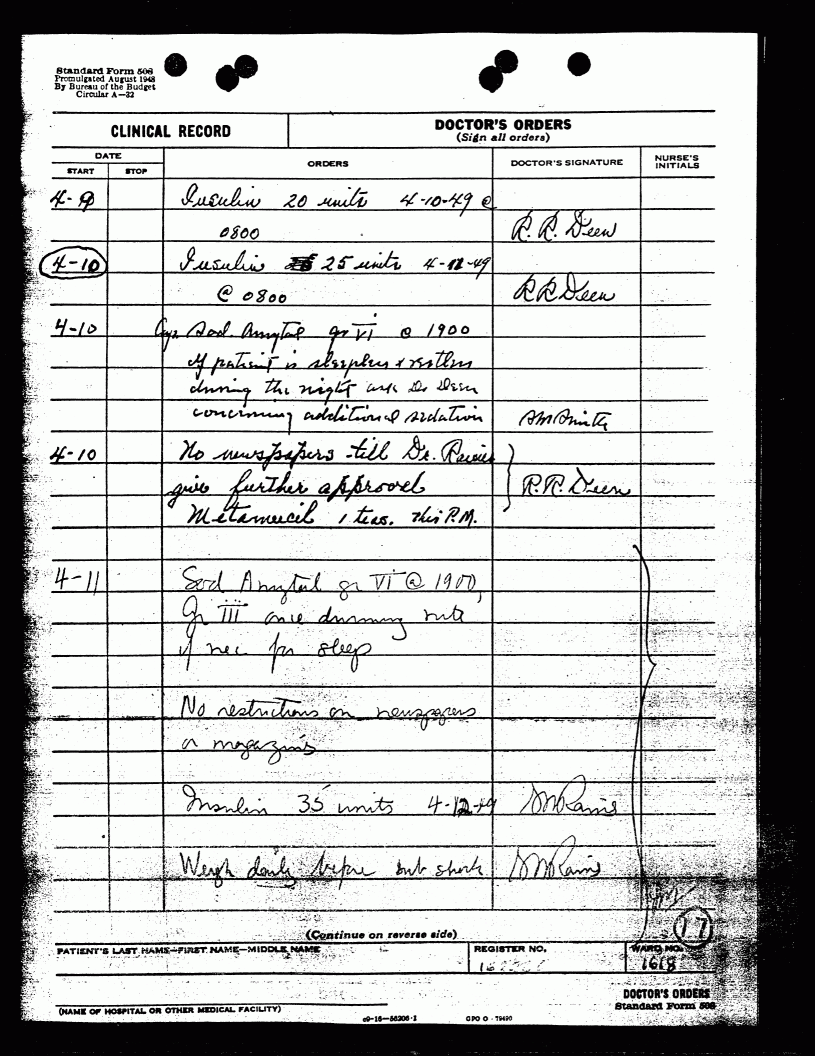 Standard Form 508
Promulgated August 1948
By Bureau of the Budget
Circular A—32
CLINICAL RECORD
DOCTOR'S ORDERS
(Sign all orders)
DATE
START STOP
ORDERS
DOCTOR'S SIGNATURE
NURSE'S INITIALS
4-9 Insulin 20 units 4-10-49 @
0800 R. R. Deen
4-10 Insulin 25 units 4-11-49
@ 0800 R R Deen
4-10 Sod. Amytal gr VI @ 1900
If patient is sleepless & restless
during the night ask Dr Deen
concerning additional sedation
4-10 No newspapers till Dr. Raines
give further approval R. R. Deen
Metamucil 1 teas. this P.M.
4-11 Sod Amytal gr VI @ 1900,
Gr III once during nite
if nec for sleep
No restrictions on newspapers
or magazines
Insulin 35 units 4-12-49 Raines
Weigh daily before sub shock Raines
17
(Continue on reverse side)
PATIENT'S LAST NAME—FIRST NAME—MIDDLE NAME
REGISTER NO.
WARD NO.
1618
DOCTOR'S ORDERS
Standard Form 508
(NAME OF HOSPITAL OR OTHER MEDICAL FACILITY)
GPO O - 79490